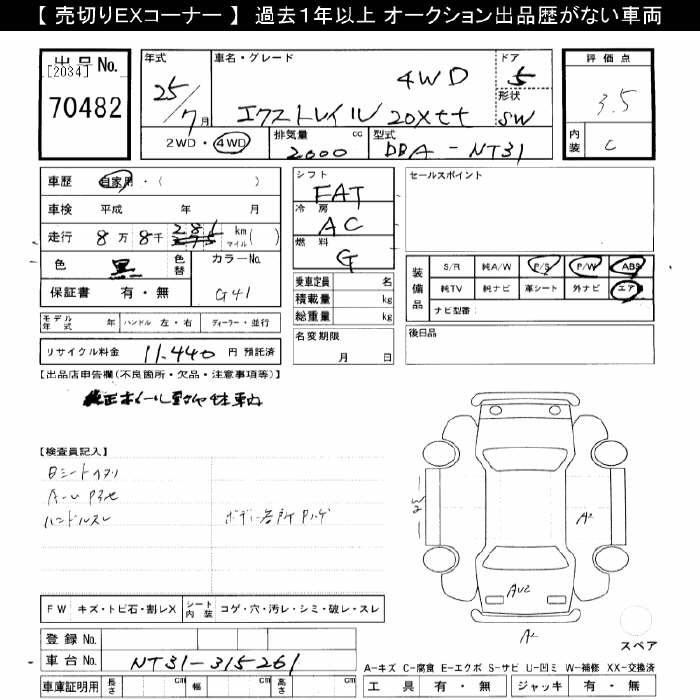 【 売切りEXコーナー 】 過去1年以上 オークション出品歴がない車両
出品No.
[2034]
70482
年式
25/7月
車名・グレード
4WD
エクストレイル 20Xtt
ドア
5
形状
SW
評価点
3.5
内装
C
2WD・4WD
排気量 cc
2000
型式
DBA-NT31
車歴 自家用・( )
車検 平成 年 月
走行 8万8千281 km マイル( )
色 黒 色替
カラーNo.
G41
保証書 有・無
シフト
FAT
冷房
AC
燃料
G
乗車定員 名
積載量 kg
総重量 kg
セールスポイント
装備品
S/R 純A/W P/S P/W ABS
純TV 純ナビ 革シート 外ナビ エア
ナビ型番:
モデル年式 年 ハンドル 左・右 ディーラー・並行
リサイクル料金 11.440 円 預託済
名変期限
月 日
後日品
【出品店申告欄(不良箇所・欠品・注意事項等)】
純正ホイール
車内
【検査員記入】
ハンドルスレ
ボディ各所
A2
W2
AU2
A2
FW キズ・トビ石・割レX シート内装 コゲ・穴・汚レ・シミ・破レ・スレ
登録No.
車台No. NT31-315261
車庫証明用 長さ cm 幅 cm 高さ cm
スペア
A-キズ C-腐食 E-エクボ S-サビ U-凹ミ W-補修 XX-交換済
工具 有・無 ジャッキ 有・無